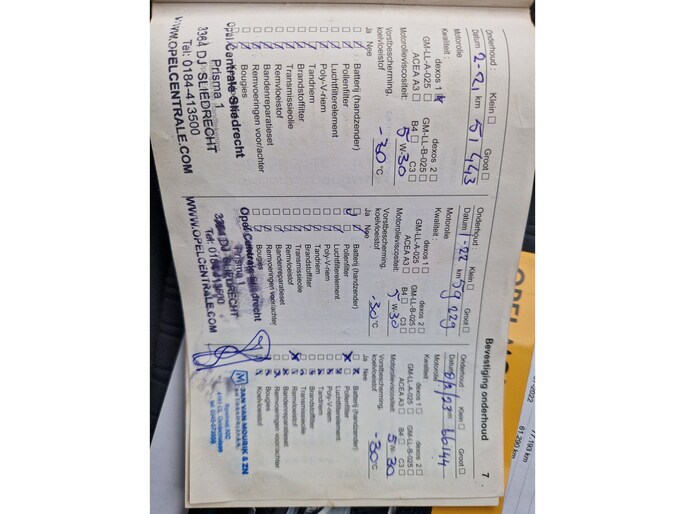 Bevestiging onderhoud
7
Onderhoud : Klein □ Groot □
Datum 2-21 km 51 443
Motorolie
Kwaliteit : dexos 1 dexos 2 □
GM-LL-A-025 □ GM-LL-B-025 □
ACEA A3 □ B4 □ C3 □
Motorolieviscositeit: 5 W-30
Vorstbescherming,
koelvloeistof -30 °C
Ja Nee
Batterij (handzender)
Pollenfilter
Luchtfilterelement
Poly-V-riem
Tandriem
Brandstoffilter
Transmissieolie
Remvloeistof
Bandenreparatieset
Remvoeringen voor/achter
Bougies
Opel Centrale Sliedrecht
Prisma 1
3364 DJ SLIEDRECHT
Tel: 0184-413500
WWW.OPELCENTRALE.COM
Onderhoud : Klein □ Groot □
Datum 1-22 km 59 229
Motorolie
Kwaliteit : dexos 1 □ dexos 2 □
GM-LL-A-025 □ GM-LL-B-025 □
ACEA A3 □ B4 □ C3 □
Motorolieviscositeit: 5 W-30
Vorstbescherming,
koelvloeistof -30 °C
Ja Nee
Batterij (handzender)
Pollenfilter
Luchtfilterelement
Poly-V-riem
Tandriem
Brandstoffilter
Transmissieolie
Remvloeistof
Bandenreparatieset
Remvoeringen voor/achter
Bougies
Opel Centrale Sliedrecht
Prisma 1
3364 DJ SLIEDRECHT
Tel: 0184-413500
WWW.OPELCENTRALE.COM
Onderhoud : Klein □ Groot □
Datum km 66144
Motorolie
Kwaliteit : dexos 1 □ dexos 2 □
GM-LL-A-025 □ GM-LL-B-025 □
ACEA A3 □ B4 □ C3 □
Motorolieviscositeit: 5 W-30
Vorstbescherming,
koelvloeistof -30 °C
Ja Nee
Batterij (handzender)
Pollenfilter
Luchtfilterelement
Poly-V-riem
Tandriem
Brandstoffilter
Transmissieolie
Remvloeistof
Bandenreparatieset
Remvoeringen voor/achter
Bougies
Koelvloeistof
JAN VAN MOURIK & ZN
OPEL
61 290 km